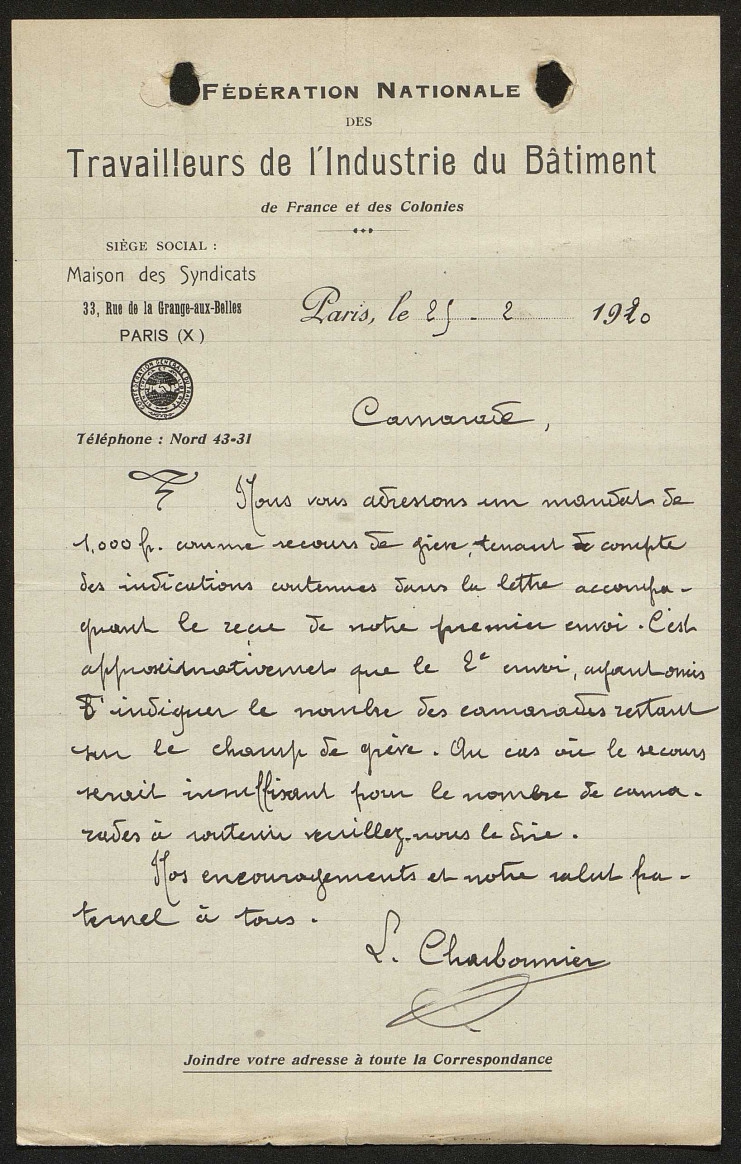 FÉDÉRATION NATIONALE
DES
Travailleurs de l'Industrie du Bâtiment
de France et des Colonies
SIÈGE SOCIAL :
Maison des Syndicats
33, Rue de la Grange-aux-Belles
PARIS (X)
Téléphone : Nord 43-31
Paris, le 25 - 2 1920
Camarade,
Nous vous adressons un mandat de
1.000 fr. comme secours de grève, tenant compte
des indications contenues dans la lettre accompa-
gnant le reçu de notre premier envoi. C'est
approximativement que le 2e envoi, ayant omis
d'indiquer le nombre des camarades restant
sur le champ de grève. Au cas où le secours
serait insuffisant pour le nombre de cama-
rades à soutenir veuillez-nous le dire.
Nos encouragements et notre salut fra-
ternel à tous.
L. Charbonnier
Joindre votre adresse à toute la Correspondance